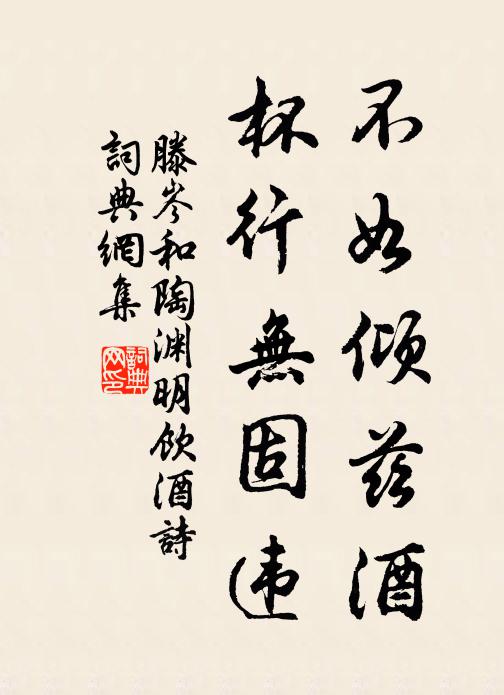 不如傾茲酒
杯行無固违
滕岑和陶渊明飲酒詩
詞典網集
詞典网印